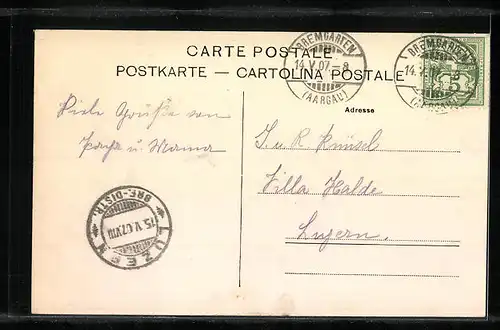 CARTE POSTALE
POSTKARTE – CARTOLINA POSTALE
BREMGARTEN
14.V.07–8
(AARGAU)
BREMGARTEN
14.V.07–8
(AARGAU)
5
Adresse
Viele Grüße von
Papa u. Mama
J. u. R. Künzel
Villa Halde
Luzern.
LUZERN
BRF.-DISTR.
15.V.07.VIII